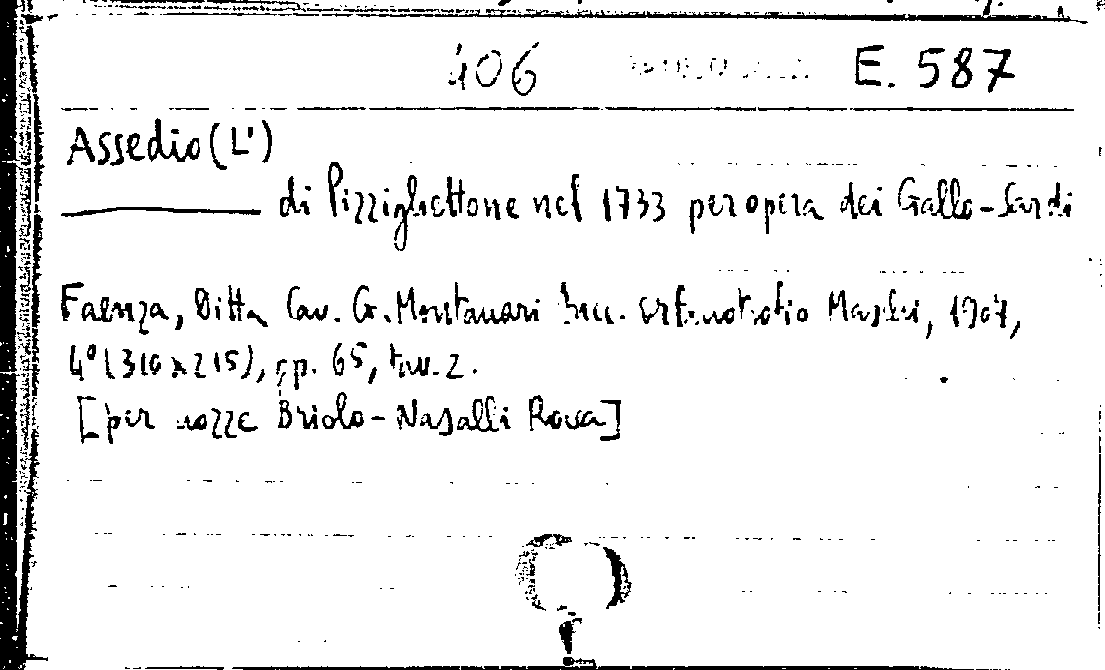 406 E. 587
Assedio (L')
di Pizzighettone nel 1733 per opera dei Gallo-Sardi
Faenza, Ditta Cav. G. Montanari Succ. 1907,
4° (310 x 215), pp. 65, tav. 2.
[per nozze Briolo-Nasalli Rocca]